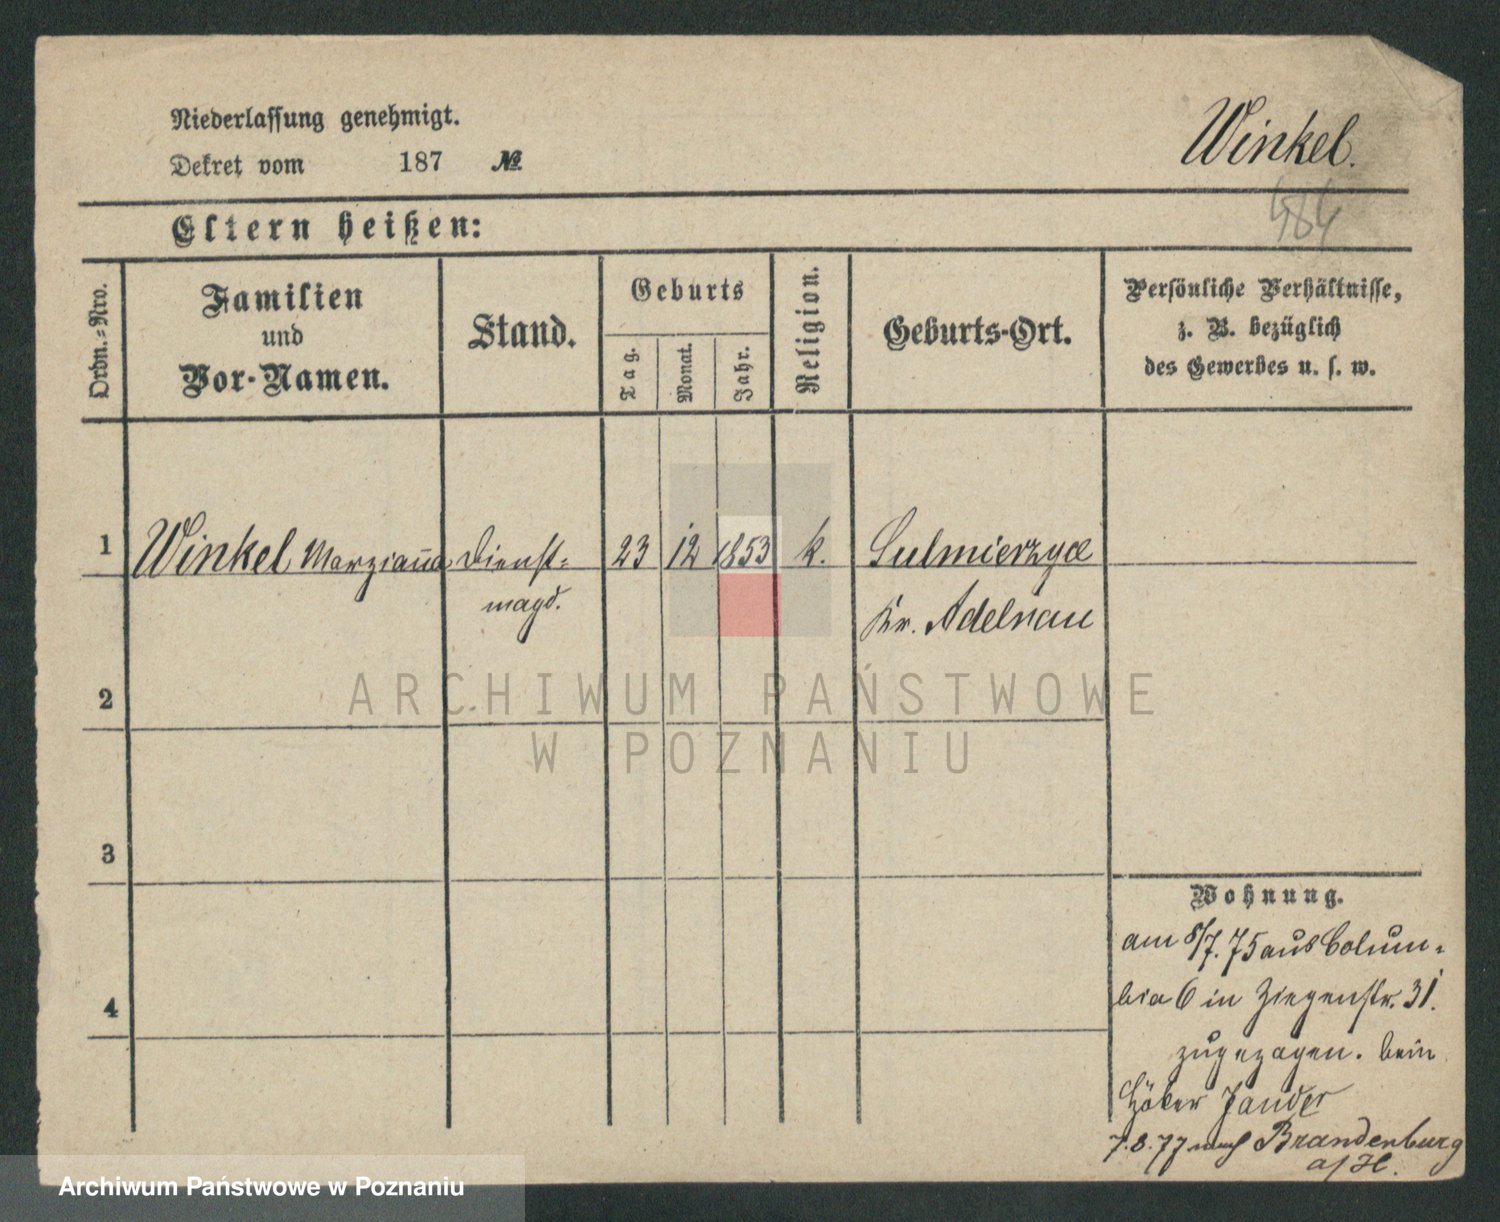 Niederlassung genehmigt.
Winkel.
Dekret vom 187 №
484
Eltern heißen:
Ordn.-Nro.
Familien
und
Vor-Namen.
Stand.
Geburts
Tag.
Monat.
Jahr.
Religion.
Geburts-Ort.
Persönliche Verhältnisse,
z. B. bezüglich
des Gewerbes u. s. w.
1 Winkel Marzianna Dienst- 23 12 1853 k. Sulmierzyce
magd. Kr. Adelnau
2
ARCHIWUM PAŃSTWOWE
W POZNANIU
3
Wohnung.
am 8/7. 75 aus Colum-
4 bia 6 in Ziegenstr. 31.
zugezogen. beim
Höker Jander
7.8.77 nach Brandenburg
a/H.
Archiwum Państwowe w Poznaniu